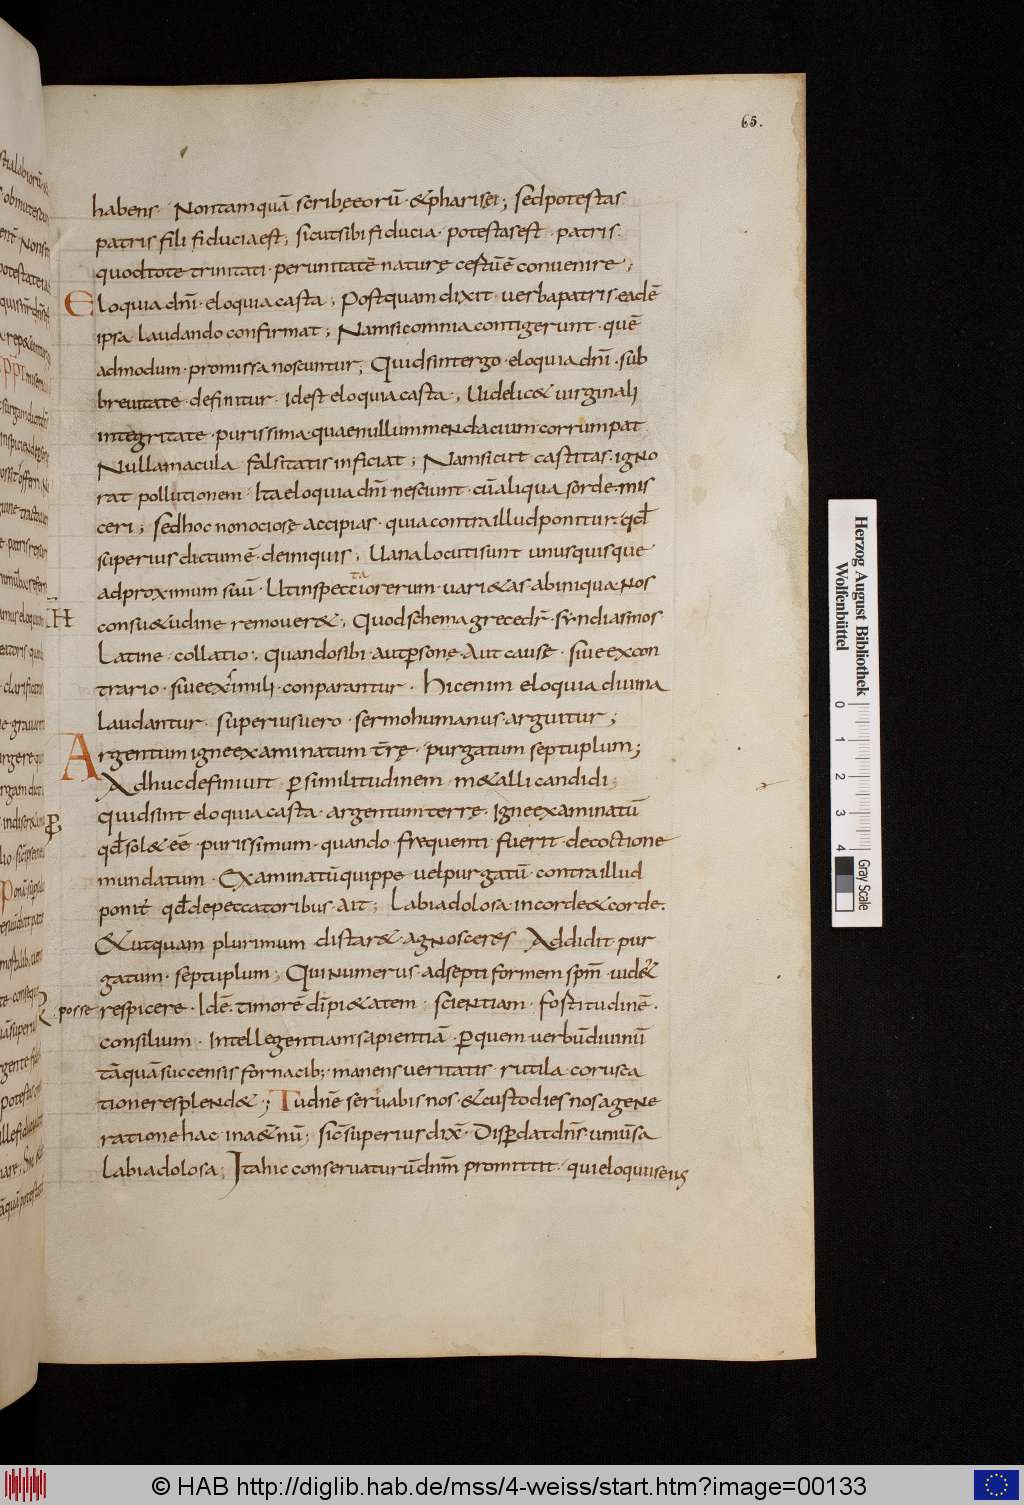 65.
habens · Nontamquā scribęeorū · &pharisei; sedpotestas
patris fili fiduciaest; sicutsibi fiducia · potestasest · patris.
quodtote trinitati · perunitatē naturę certūē convenire;
Eloquia dn̄i · eloquia casta; Postquam dixit · uerbapatris · eadē
ipsa laudando confirmat; Namsicomnia contigerunt · quē
admodum · promissa noscuntur; Quidsintergo · eloquia dn̄i · sub
breuitate · definitur · idest eloquia casta; Uidelic& uirginali
integritate · purissima quaenullum mendacium corrumpat
Nulla macula falsitatis inficiat; Nam sicut castitas · igno
rat pollutionem · Ita eloquia dn̄i nesciunt · cū aliqua sorde · mis
ceri; sed hoc nonociosę accipias · quia contra illud ponitur · qđ
superius dictum ē · de iniquis; Uana locuti sunt unusquisque
ad proximum suū · Ut inspectiorerum · uari&as · ab iniqua nos
ta
consu&udine remouer&; Quod schema grece dr̄ · syndiasmos
Latine · collatio; quando sibi · aut personę · Aut causę · siue ex con
trario · siue ex simili · conparantur · hic enim eloquia diuina
Laudantur · superius uero · sermo humanus arguitur;
Argentum igne examinatum tr̄ę · purgatum septuplum;
Adhuc definiuit per similitudinem · m&alli candidi;
quid sint eloquia casta · argentum terrę · Igne examinatū
qđ sol& eē · purissimum · quando frequenti fuerit · decoctione
mundatum · Examinatū quippe uel purgatū · contra illud
ponit qđ de peccatoribus · ait; Labia dolosa · in corde & corde ·
& ut quam plurimum distar& · agnosceres Addidit pur
gatum · septuplum; Qui numerus · ad septiformem spm̄ · uid&
posse respicere · Idē · timorē dī pi&atem · scientiam · fortitudinē ·
consilium · Intellegentiam sapientiā · per quem uerbū diuinū
tāquā succensis fornacib; · manens ueritatis · rutila · corusca
tione resplend&; Tu dn̄e seruabis nos · & custodies nos a gene
ratione hac · in a&nū; sic superius dix̄ · Disperdat dn̄s · uniuersa
Labia dolosa; Ita hic conseruaturū dn̄m promittit · qui eloquiis eius
Herzog August Bibliothek
Wolfenbüttel
0 1 2 3 4
Gray Scale
© HAB http://diglib.hab.de/mss/4-weiss/start.htm?image=00133